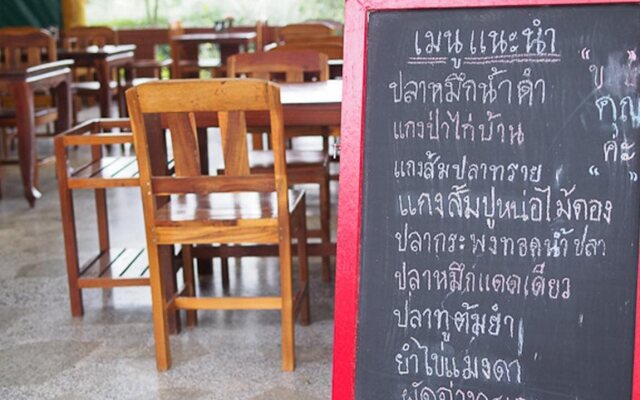 เมนูแนะนำ
ปลาหมึกน้ำดำ
แกงป่าไก่บ้าน
แกงส้มปลาทราย
แกงส้มปูหน่อไม้ดอง
ปลากระพงทอดน้ำปลา
ปลาหมึกแดดเดียว
ปลาทูต้มยำ
ยำไข่แมงดา
คุณ
"คะ"